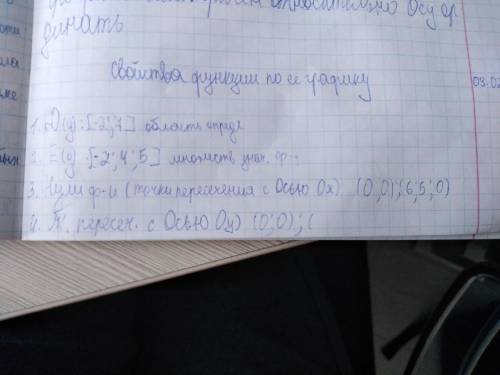 относительно Осу ор
динать
Свойства функции по её графику
03.02
1. D(y): [-2; 7] область опред
2. E(y) [-2; 4; 5] множеств знач. ф-
3. Нули ф-и (точки пересечения с Осью Ох) (0; 0); (6; 5; 0)
4. Т. пересеч. с Осью Оу) (0; 0); (